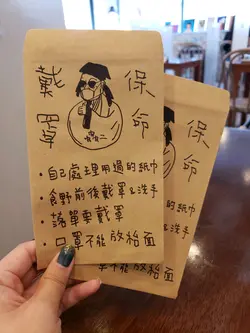 戴罩
保命
·自己處理用過的紙巾
·食野前後戴罩&洗手
·落單要戴罩
·口罩不能放枱面
保命
的紙巾
罩&洗手
不能放枱面